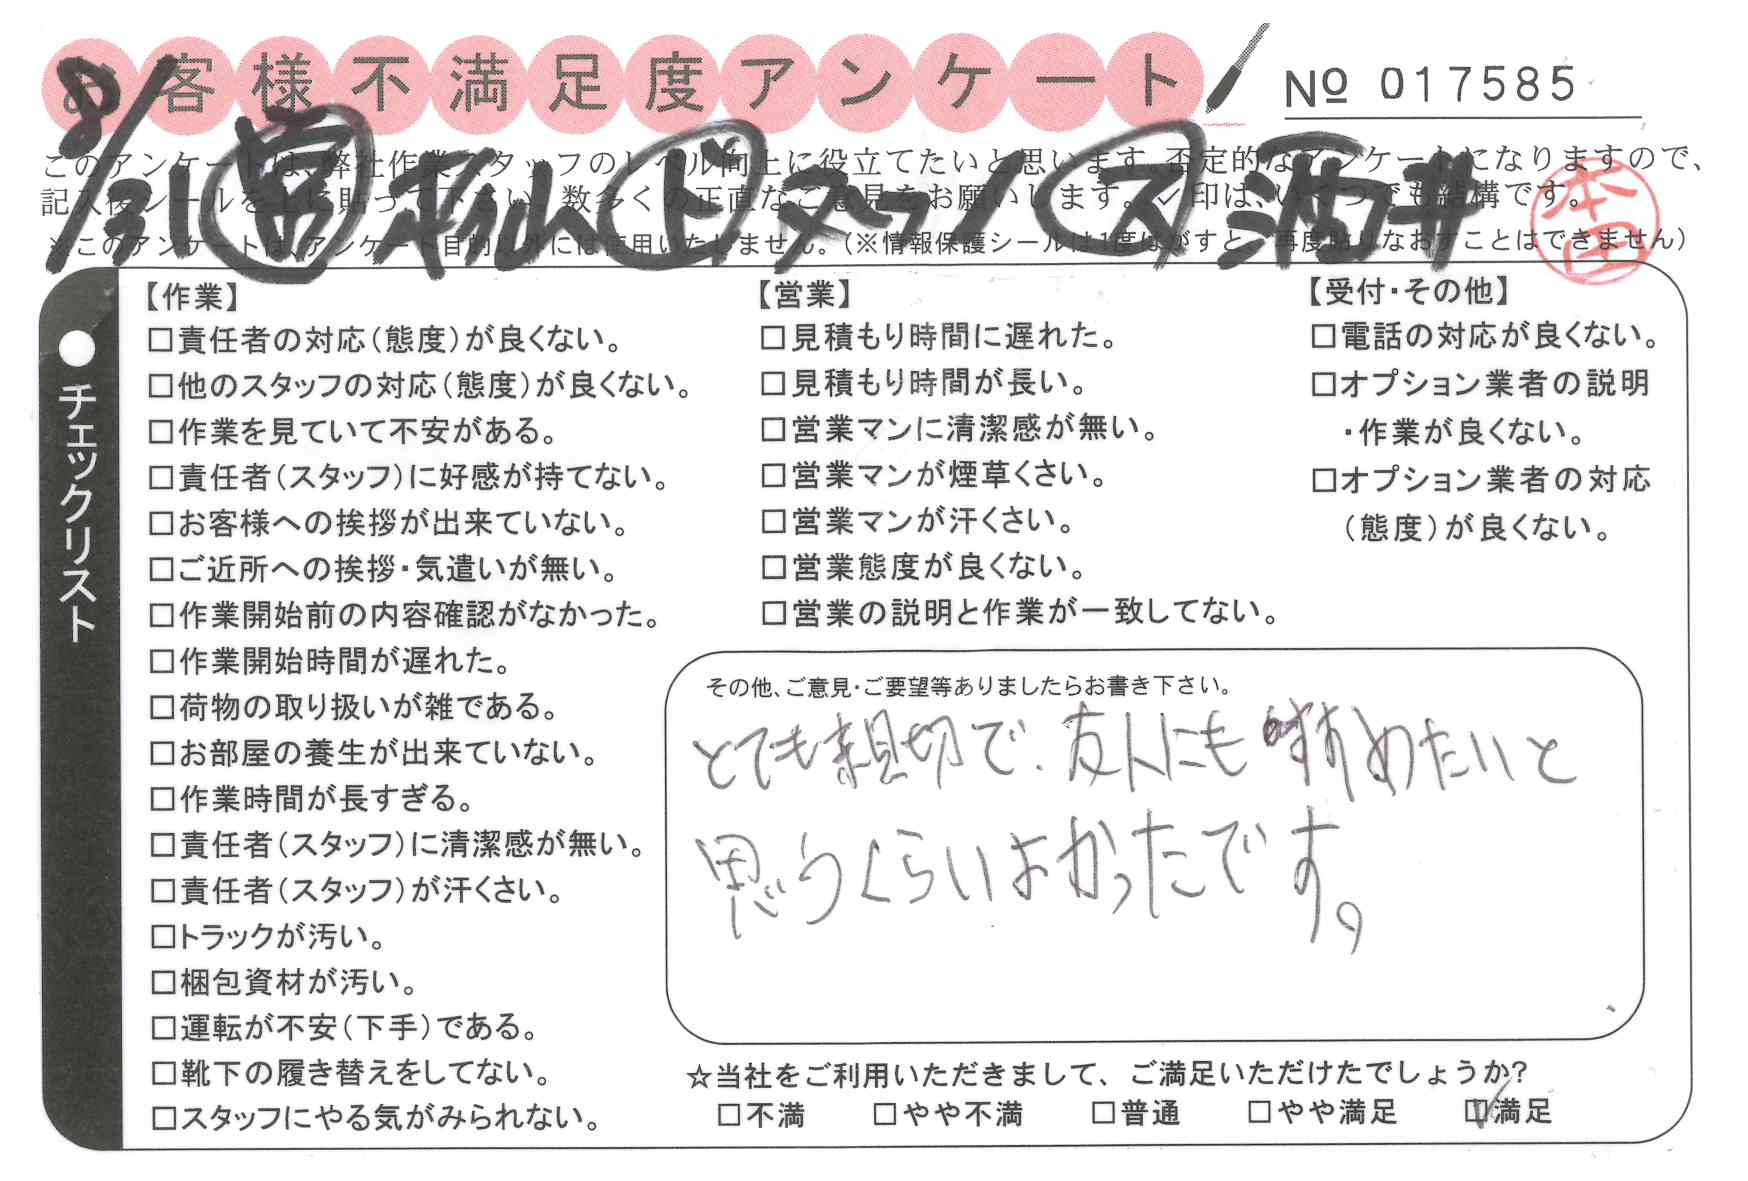 お客様不満足度アンケート
№ 017585
このアンケートは、弊社作業スタッフのレベル向上に役立てたいと思います。否定的なアンケートになりますので、
記入後シールを上に貼って下さい。数多くの正直なご意見をお願いします。✓印は、いくつでも結構です。
※このアンケートは、アンケート目的以外には使用いたしません。（※情報保護シールは1度はがすと、再度貼りなおすことはできません）
8/31 杉山 酒井
チェックリスト
【作業】
□責任者の対応（態度）が良くない。
□他のスタッフの対応（態度）が良くない。
□作業を見ていて不安がある。
□責任者（スタッフ）に好感が持てない。
□お客様への挨拶が出来ていない。
□ご近所への挨拶・気遣いが無い。
□作業開始前の内容確認がなかった。
□作業開始時間が遅れた。
□荷物の取り扱いが雑である。
□お部屋の養生が出来ていない。
□作業時間が長すぎる。
□責任者（スタッフ）に清潔感が無い。
□責任者（スタッフ）が汗くさい。
□トラックが汚い。
□梱包資材が汚い。
□運転が不安（下手）である。
□靴下の履き替えをしてない。
□スタッフにやる気がみられない。
【営業】
□見積もり時間に遅れた。
□見積もり時間が長い。
□営業マンに清潔感が無い。
□営業マンが煙草くさい。
□営業マンが汗くさい。
□営業態度が良くない。
□営業の説明と作業が一致してない。
【受付・その他】
□電話の対応が良くない。
□オプション業者の説明
・作業が良くない。
□オプション業者の対応
（態度）が良くない。
その他、ご意見・ご要望等ありましたらお書き下さい。
とても親切で、友人にもすすめたいと
思うくらいよかったです。
☆当社をご利用いただきまして、ご満足いただけたでしょうか?
□不満 □やや不満 □普通 □やや満足 ☑満足